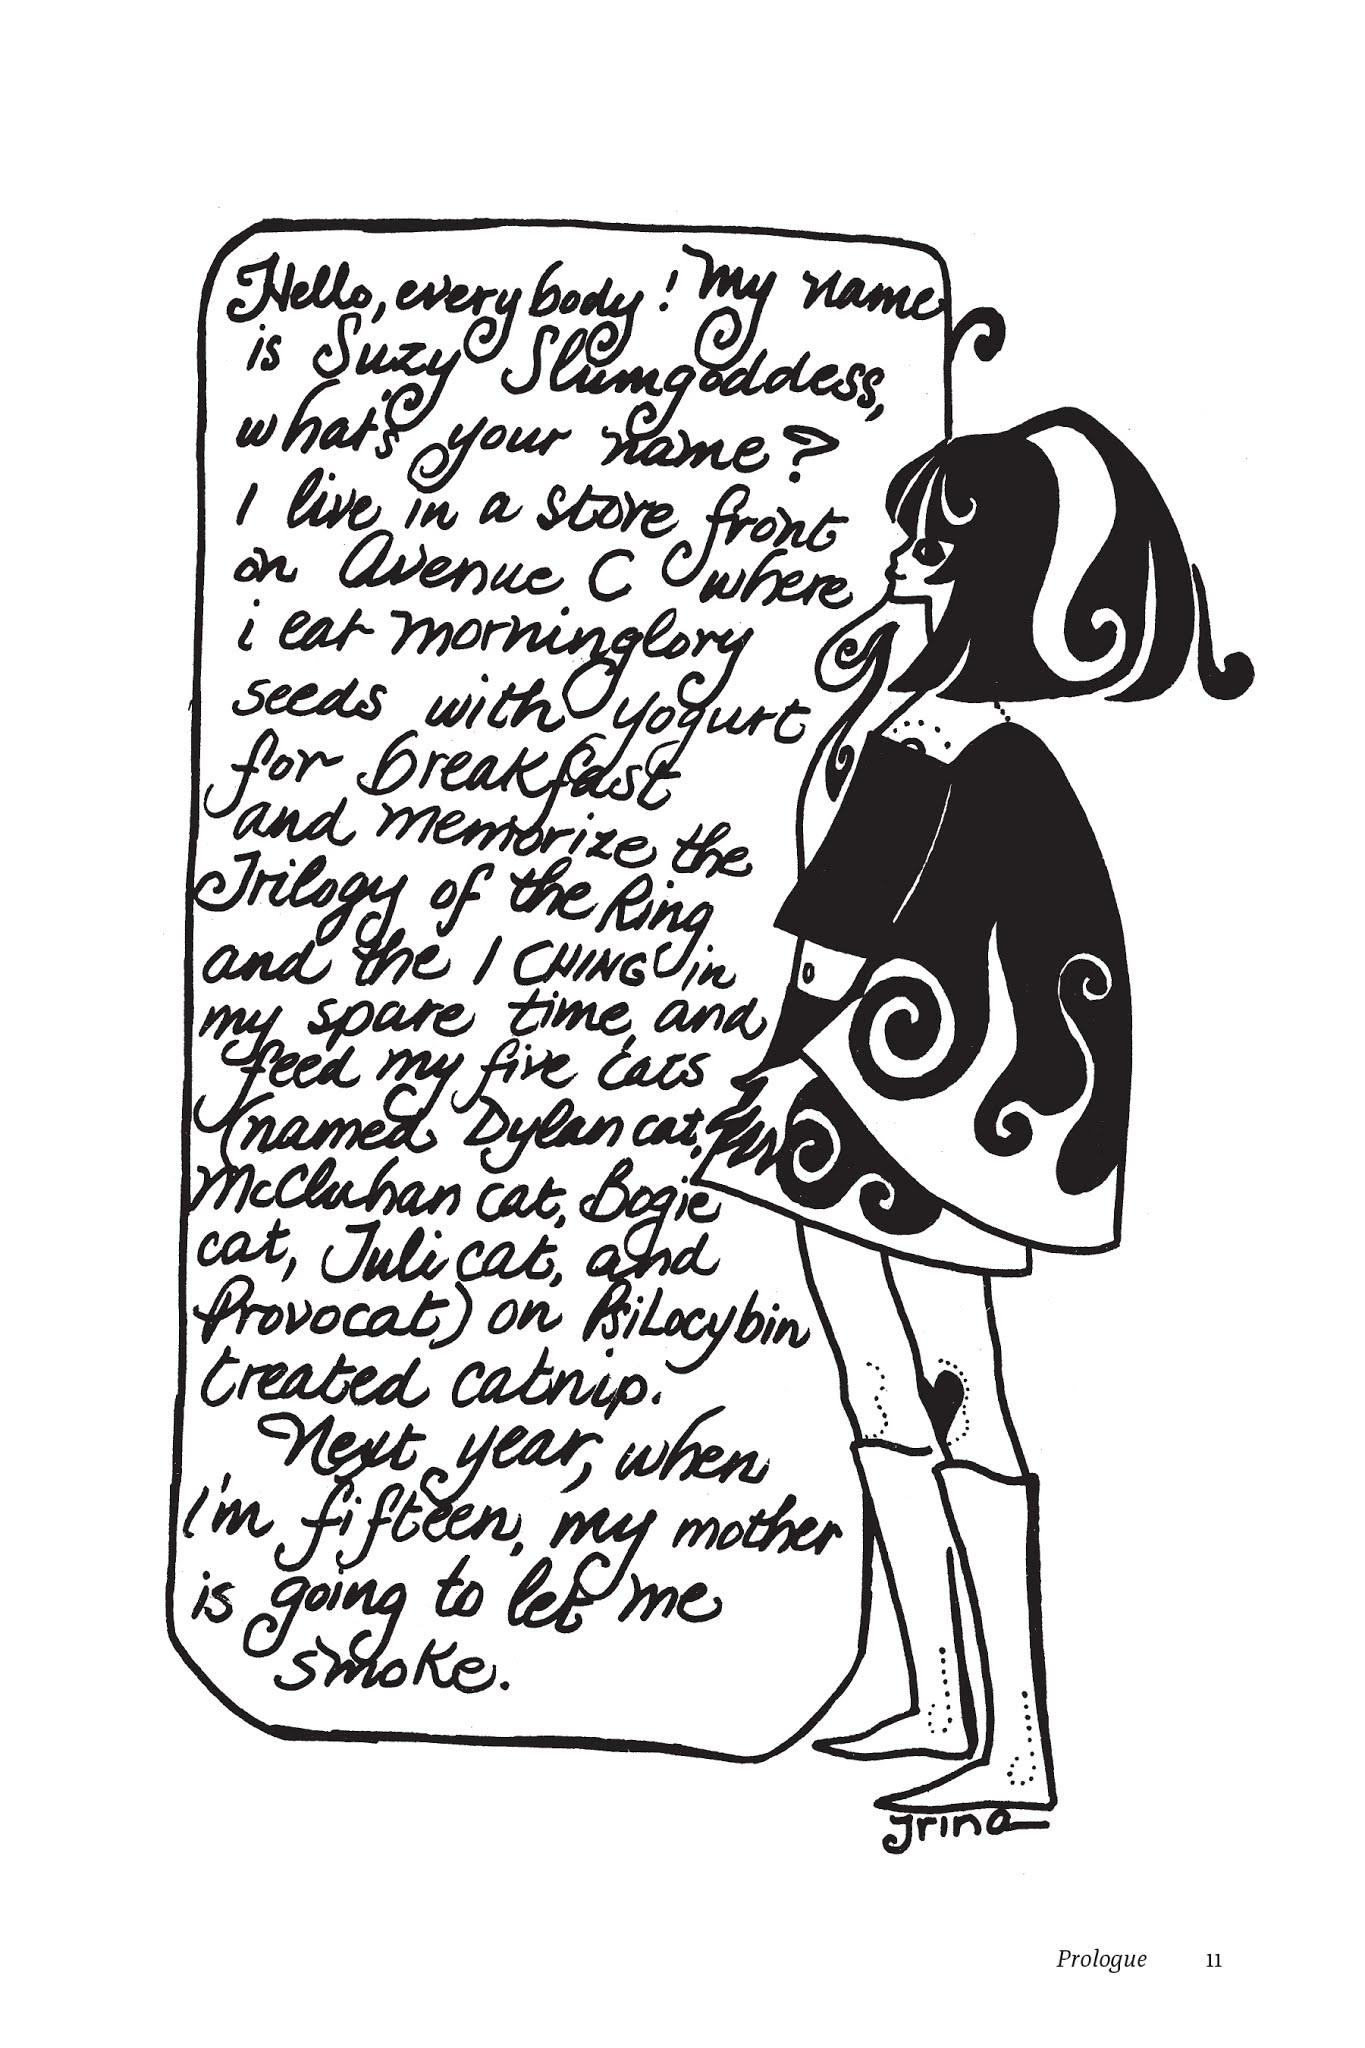 Hello, everybody! My name
is Suzy Slumgoddess,
what's your name?
I live in a store front
on Avenue C where
i eat morninglory
seeds with yogurt
for breakfast
and memorize the
Trilogy of the Ring
and the I CHING in
my spare time, and
feed my five cats
(named Dylan cat,
McCluhan cat, Bogie
cat, Juli cat, and
Provocat) on PsiLocybin
treated catnip.
Next year, when
i'm fifteen, my mother
is going to let me
smoke.
Irina
Prologue 11